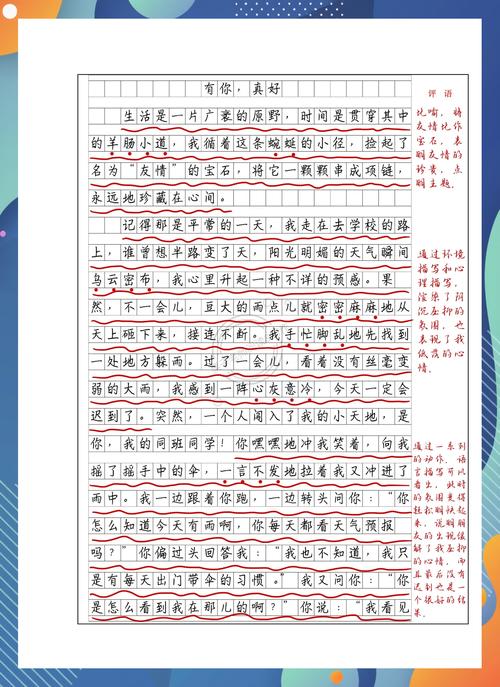 有你，真好
生活是一片广袤的原野，时间是贯穿其中
的羊肠小道，我循着这条蜿蜒的小径，捡起了
名为“友情”的宝石，将它一颗颗串成项链，
永远地珍藏在心间。
记得那是平常的一天，我走在去学校的路
上，谁曾想半路变了天，阳光明媚的天气瞬间
乌云密布，我心里升起一种不详的预感。果
然，不一会儿，豆大的雨点儿就密密麻麻地从
天上砸下来，接连不断。我手忙脚乱地先找到
一处地方躲雨。过了一会儿，看着没有丝毫变
弱的大雨，我感到一阵心灰意冷，今天一定会
迟到了。突然，一个人闯入了我的小天地，是
你，我的同班同学！你嘿嘿地冲我笑着，向我
摇了摇手中的伞，一言不发地拉着我又冲进了
雨中。我一边跟着你跑，一边转头问你：“你
怎么知道今天有雨啊，你每天都看天气预报
吗？”你偏过头回答我：“我也不知道，我只
是有每天出门带伞的习惯。”我又问你：“你
是怎么看到我在那儿的啊？”你说：“我看见
评语
比喻，将
友情比作
宝石，表
明友情的
珍贵，点
明主题。
通过环境
描写和心
理描写，
渲染了阴
沉压抑的
氛围，也
表现了我
低落的心
情。
通过一系列
的动作、语
言描写可以
看出，此时
的氛围变得
轻松明快起
来，说明朋
友的出现缓
解了我压抑
的心情，而
且最后没有
迟到也是一
个很好的结
果。